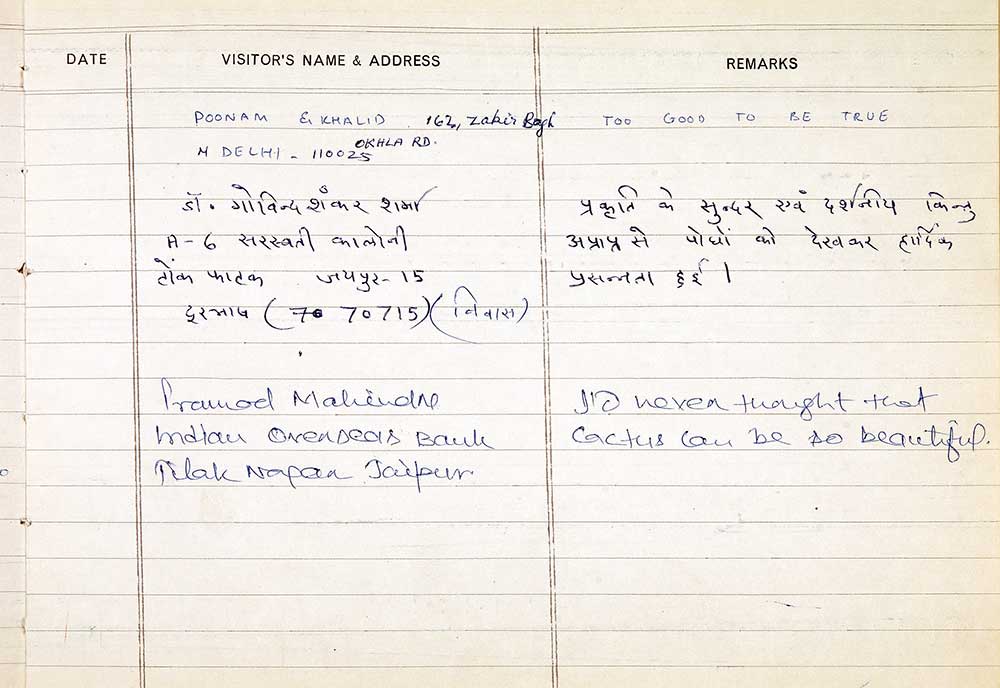 DATE VISITOR'S NAME & ADDRESS REMARKS
POONAM & KHALID. 162, Zakir Bagh TOO GOOD TO BE TRUE
OKHLA RD.
N DELHI - 110025
डॉ. गोविन्द शंकर शर्मा प्रकृति के सुन्दर एवं दर्शनीय किन्तु
A-6 सरस्वती कालोनी अप्राप्र से पोधों को देखकर हार्दिक
टोंक फाटक जयपुर-15 प्रसन्नता हुई।
दूरभाष (70 70715) (निवास)
Pramod Mahendre I'D never thought that
Indian Overseas Bank Cactus can be so beautiful.
Tilak Nagar Jaipur